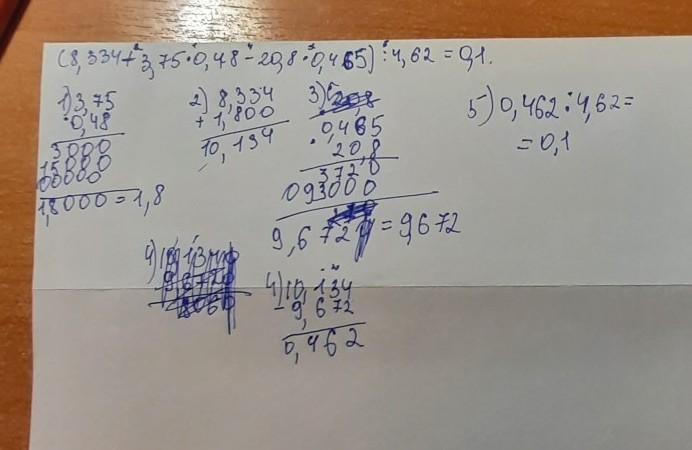 (8,334+3,75·0,48-20,8·0,465):4,62=0,1.
1)3,75
·0,48
3000
15000
00000
1,8000=1,8
2)8,334
+1,800
10,134
3)
0,465
·20,8
3720
093000
9,672 =9,672
4)10,134
-9,672
0,462
5)0,462:4,62=
=0,1